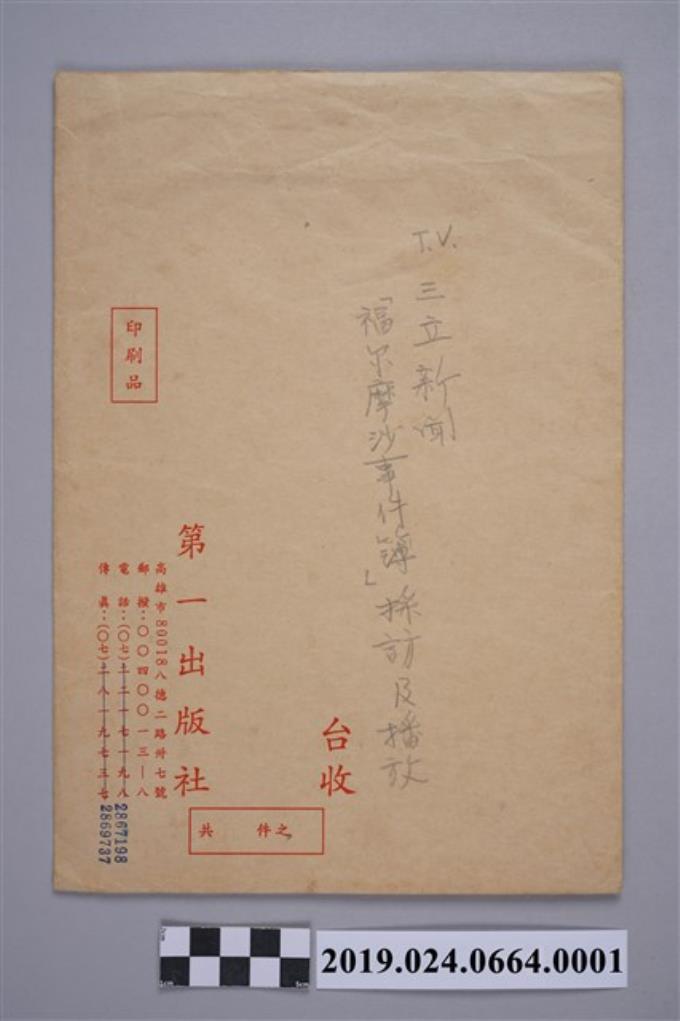 T.V. 三立新聞
「福尔摩沙事件簿」採訪及播放
台收
第一出版社
高雄市80018八德二路卅七號
郵撥：〇〇四〇〇一三—八
電話：（〇七）二一七一九八
2867198
傳真：（〇七）二八一九七三七
2869737
印刷品
共 件之
2019.024.0664.0001